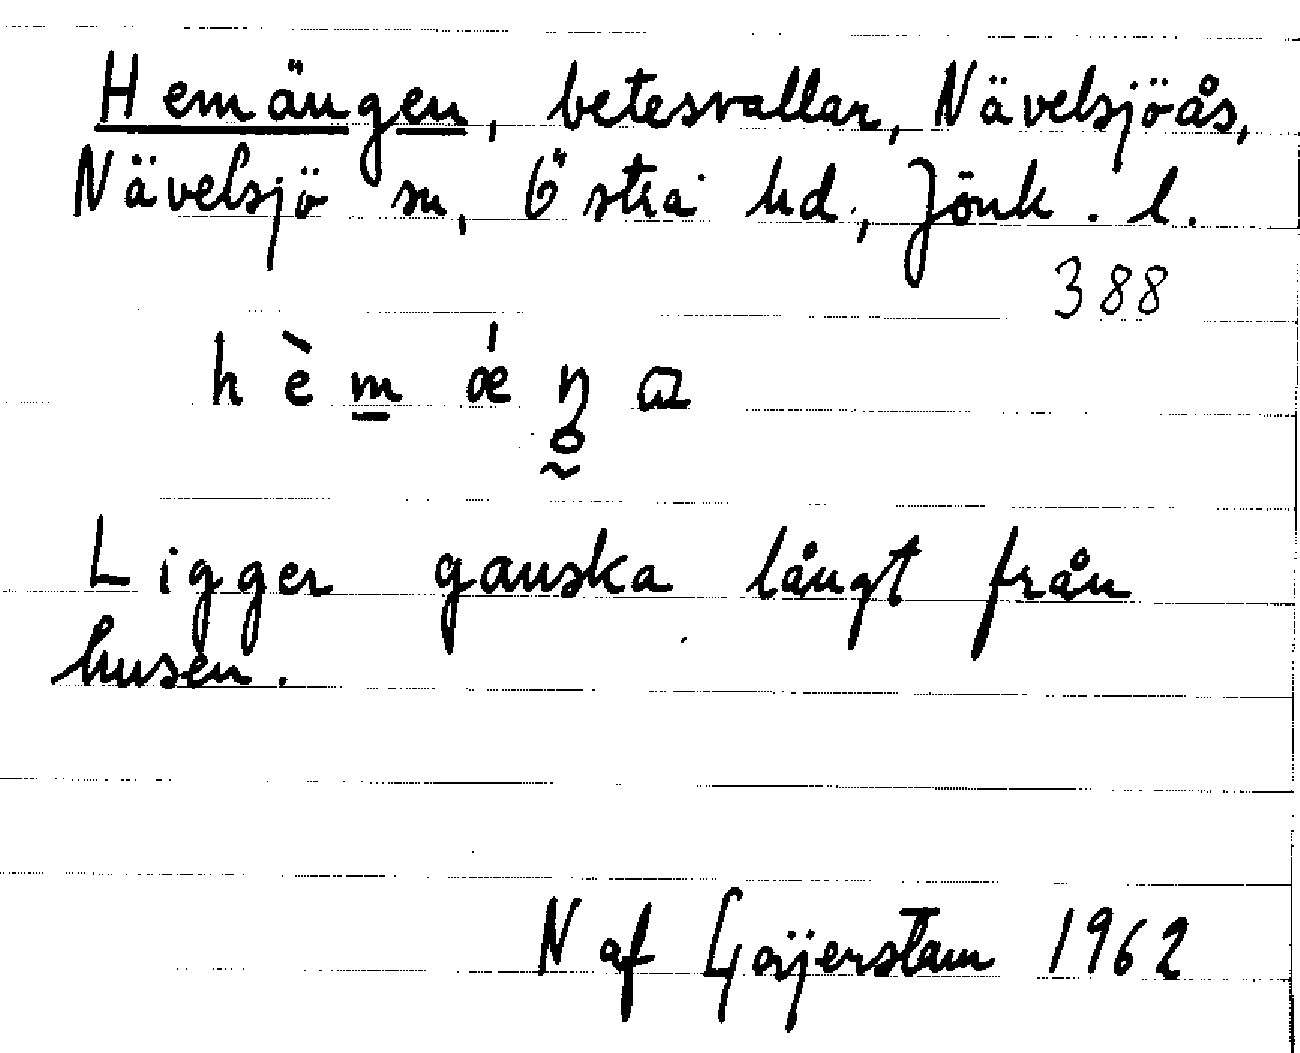 Hemängen, betesvallar, Nävelsjöås,
Nävelsjö sn, Östra hd, Jönk. l.
388
hèmǽŋa
Ligger ganska långt från
husen.
N af Geijerstam 1962